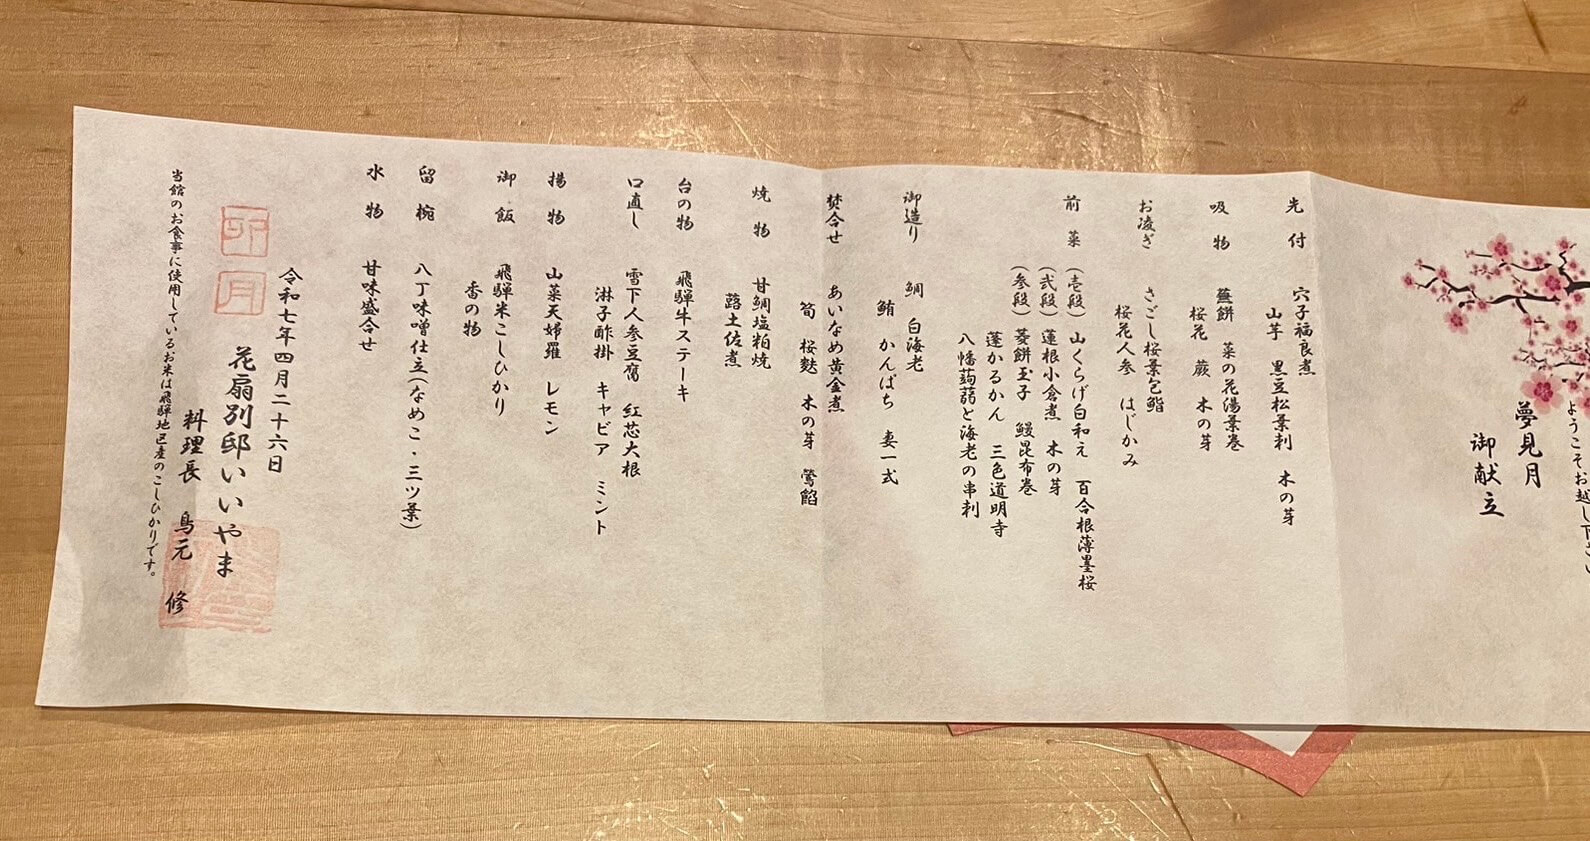 ようこそお越し下さい
夢見月
御献立
先付 穴子福良煮
山芋 黒豆松葉刺 木の芽
吸物 蕪餅 菜の花湯葉巻
桜花 蕨 木の芽
お凌ぎ さごし桜葉包鮨
桜花人参 はじかみ
前菜 (壱段) 山くらげ白和え 百合根薄墨桜
(弐段) 蓮根小倉煮 木の芽
(参段) 菱餅玉子 鰻昆布巻
蓬かるかん 三色道明寺
八幡蒟蒻と海老の串刺
御造り 鯛 白海老
鮪 かんぱち 妻一式
焚合せ あいなめ黄金煮
筍 桜麩 木の芽 鶯餡
焼物 甘鯛塩粕焼
蕗土佐煮
台の物 飛騨牛ステーキ
口直し 雪下人参豆腐 紅芯大根
淋子酢掛 キャビア ミント
揚物 山菜天婦羅 レモン
御飯 飛騨米こしひかり
香の物
留椀 八丁味噌仕立(なめこ・三ツ葉)
水物 甘味盛合せ
令和七年四月二十六日
花扇別邸いいやま
料理長 鳥元 修
当館のお食事に使用しているお米は飛騨地区産のこしひかりです。